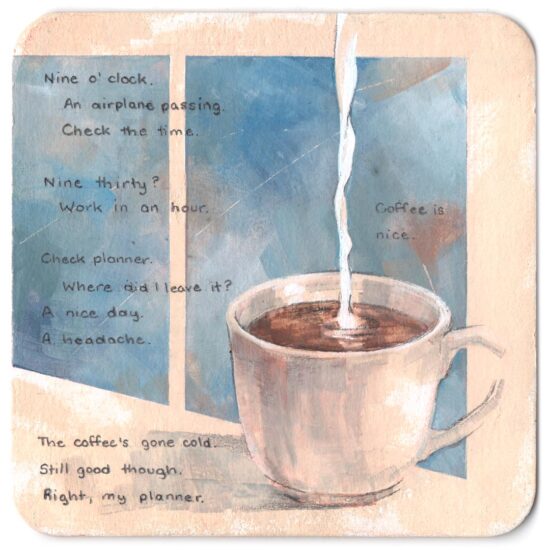 Nine o' clock.
An airplane passing.
Check the time.
Nine thirty?
Work in an hour.
Coffee is
nice.
Check planner.
Where did I leave it?
A nice day.
A headache.
The coffee's gone cold.
Still good though.
Right, my planner.